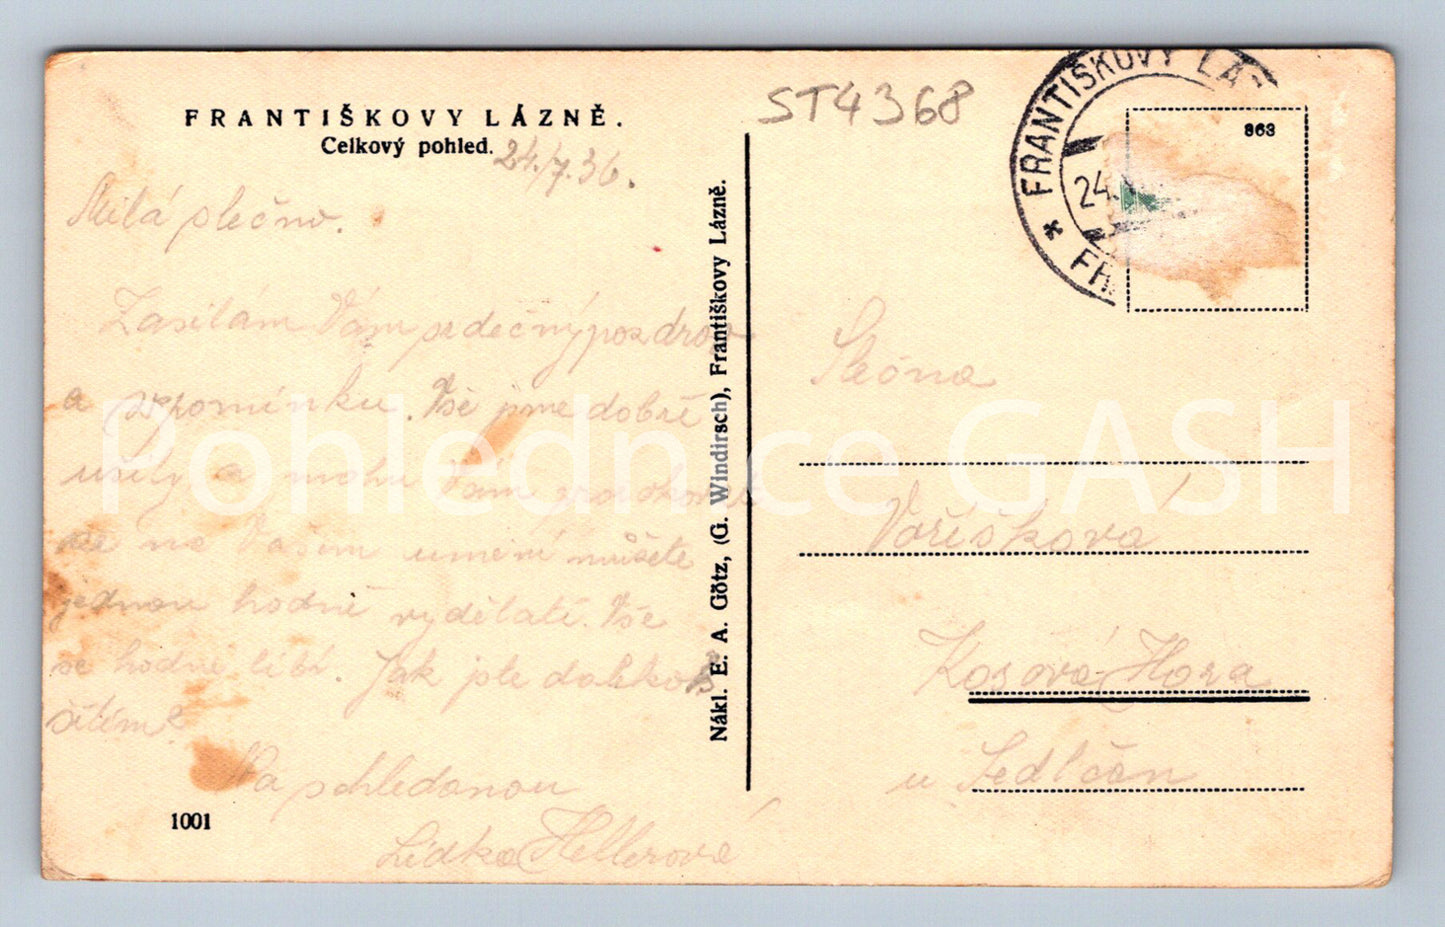 FRANTIŠKOVY LÁZNĚ.
Celkový pohled.
24./7.36.
Milá slečno.
Zasílám Vám srdečný pozdrav
a vzpomínku. Vše jsme dobře
a mohu Vám
že na Vašem umění můžete
jednou hodně vydělati. Vše
se hodně líbí. Jak jste daleko s
šitím?
Na shledanou
Lidka Hellerová
1001
Nákl. E. A. Götz, (G. Windirsch), Františkovy Lázně.
ST4368
FRANTIŠKOVY LÁZ
24.
* FRA
863
Slečna
Voříškova
Kosová Hora
u Sedlčan
Pohlednice GASH